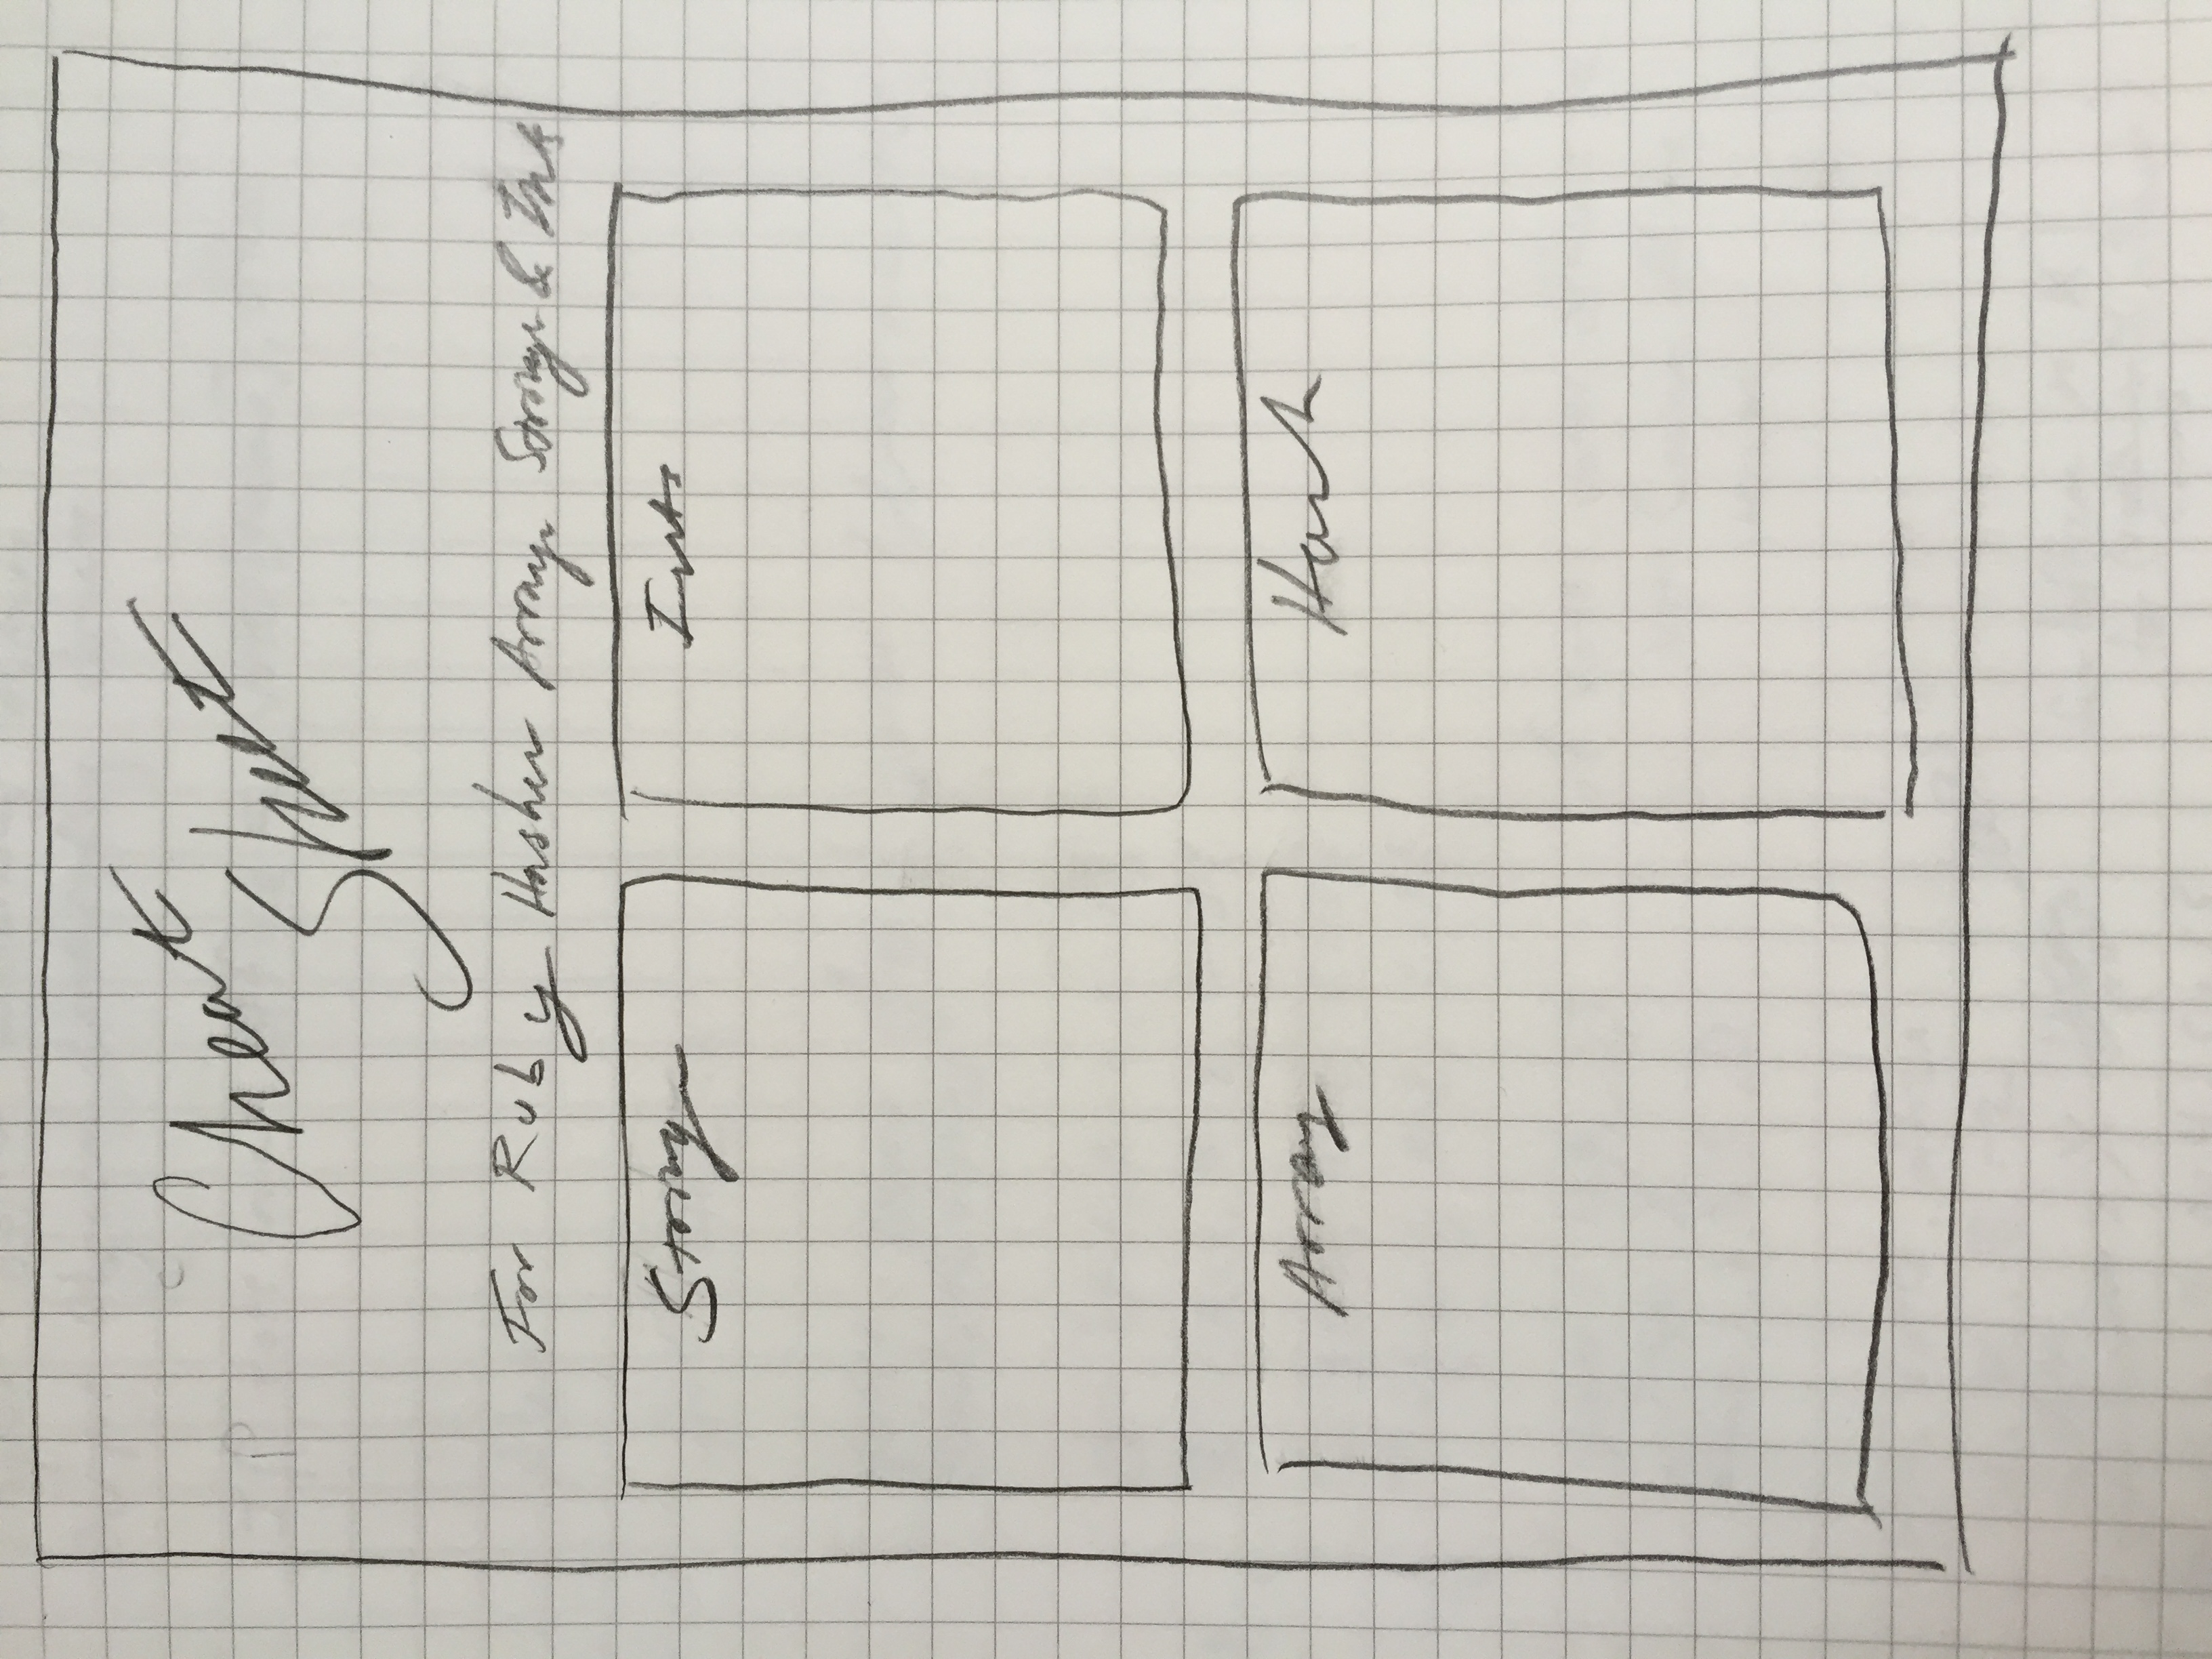 Cheat
Sheet
For Ruby Hashes Arrays Strings & Ints
Strings
Ints
Array
Hash